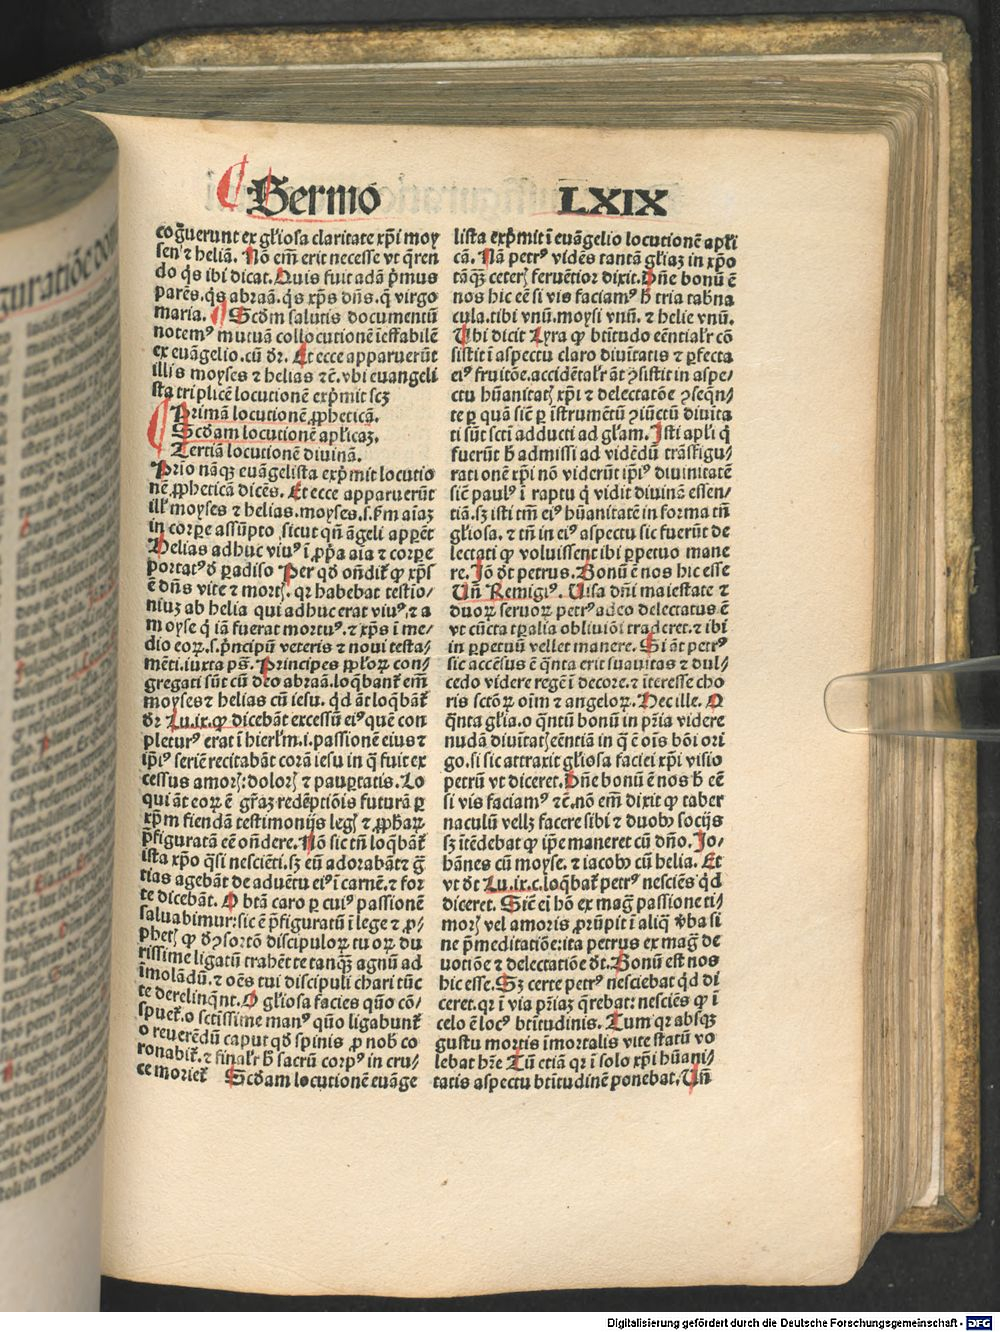 Sermo LXIX
cogūerunt ex gl̄iosa claritate xp̄i moy
sen ⁊ heliā. Nō em̄ erit necesse vt q̄ren
do q̄s ibi dicat. Quis fuit adā p̄mus
parēs. q̄s abraā. q̄s xp̄s dn̄s. q̄ virgo
maria. Scd̄m salutis documentū
notemꝰ mutuā collocutionē ieffabilē
ex euāgelio. cū d̄r. Et ecce apparuerūt
illis moyses ⁊ helias ⁊c̄. vbi euangeli
sta triplicē locutionē exp̄mit scꝫ
Primā locutionē ꝓpheticā.
Scd̄am locutionē apl̄icaꝫ.
Tertiā locutionē diuinā.
Prio nāqꝫ euāgelista exp̄mit locutio
nē ꝓpheticā dicēs. Et ecce apparuerūt
ill̓ moyses ⁊ helias. moyses. s. ẜm aīaꝫ
in corꝑe assūpto sicut qn̄ āgeli apꝑēt
Helias adhuc viuꝰ ī ꝓpͥa aīa ⁊ corꝑe
portatꝰ d̄ ꝑadiso Per qd̄ on̄dit̄ ꝙ xp̄s
ē dn̄s vite ⁊ mort̄. qꝛ habebat testio-
niuꝫ ab helia qui adhuc erat viuꝰ, ⁊ a
moyse q̄ iā fuerat mortuꝰ. ⁊ xp̄s ī me-
dio eoꝝ. s. pͥncipū veteris ⁊ noui testa-
mēti. iuxta ps̄. Principes ppl̓oꝝ con-
gregati sūt cū deo abraā. loq̄bant̄ em̄
moyses ⁊ helias cū iesu. qd̄ āt loq̄bāt̄
d̄r Lu. ix. ꝙ dicebāt excessū eiꝰ quē con
pleturꝰ erat ī hierl̓m. i. passionē eius ⁊
ip̄iꝰ seriē recitabāt corā iesu in q̄ fuit ex
cessus amor̄: dolor̄ ⁊ pauꝑtatis. Lo
qui āt eoꝝ ē gr̄aꝫ redēptiōis futurā ꝑ
xp̄m fiendā testimonijs leḡ ⁊ ꝓph̄aꝝ
p̄figuratā eē on̄dere. Nō sic tn̄ loq̄bāt̄
ista xp̄o q̄si nesciēti. sꝫ eū adorabāt ⁊ ḡ
tias agebāt de aduētu eiꝰ ī carnē. ⁊ for
te dicebāt. O btā caro ꝑ cuiꝰ passionē
saluabimur: sic ē p̄figuratū ī lege ⁊ ꝓ-
phet̄ ꝙ d̄ ꝯsortō discipuloꝝ tuoꝝ du
rissime ligatū trahēt te tanqꝫ agnū ad
īmolādū. ⁊ oēs tui discipuli chari tūc
te derelinq̄nt. O gl̓iosa facies quō cō-
spuet̄. o sctīssime manꝰ quō ligabunt̄
o reuerēdū caput qd̄ spinis ꝓ nob̓ co
ronabit̄. ⁊ final̓r h̄ sacrū corpꝰ in cru-
ce moriet̄ Scd̄am locutionē euāge
lista exp̄mit ī euāgelio locutionē apl̓i
cā. Nā petrꝰ vidēs tantā gl̓iaꝫ in xp̄o
tāqꝫ ceter̄ feruētior dixit. Dn̄e bonū ē
nos hic eē si vis faciamꝰ h̄ tria tab̄na
cula. tibi vnū. moysi vnū. ⁊ helie vnū.
Vbi dicit Lyra ꝙ btītudo eēntial̓r cō
sistit ī aspectu claro diuitatis ⁊ ꝑfecta
eiꝰ fruitōe. accidētal̓r āt ꝯsistit in aspe-
ctu hūanitat̄ xp̄i ⁊ delectatōe ꝯseqn̄-
te ꝑ quā siē ꝑ īstrumētū ꝯiūctū diuita
ti sūt scti adducti ad gl̓am. Isti apl̓i q̄
fuerūt h̄ admissi ad vidēdū trāsfigu-
rationē xp̄i nō viderūt ip̄iꝰ diuinitatē
siē paulꝰ ī raptu q̄ vidit diuinā essen-
tiā. sꝫ isti tm̄ eiꝰ hūanitatē in forma tn̄
gl̓iosa. ⁊ tn̄ in eiꝰ aspectu sic fuerūt de
lectati ꝙ voluissent ibi ꝑpetuo mane
re. Iō d̄t petrus. Bonū ē nos hic esse
Vn̄ Remigiꝰ. Uisa dn̄i maiestate ⁊
duoꝝ seruoꝝ petrꝰ adeo delectatus ē
vt cūcta tꝑalia obliuiōi traderet. ⁊ ibi
in ꝑpetuū vellet manere. Si āt petrꝰ
sic accēsus ē q̄nta erit suauitas ⁊ dul-
cedo videre regē ī decore. ⁊ iteresse cho
ris sctōꝝ oīm ⁊ angeloꝝ. Hec ille. O
q̄nta gl̓ia. o q̄ntū bonū in pr̄ia videre
nudā diuītatē eēntiā in q̄ ē oīs bōi ori
go. si sic attraxit gl̓iosa faciei xp̄i visio
petrū vt diceret. Dn̄e bonū ē nos h̄ eē
si vis faciamꝰ ⁊c̄. nō em̄ dixit ꝙ taber
naculū vellꝫ facere sibi ⁊ duobꝰ socijs
sꝫ itēdebat ꝙ ip̄e maneret cū dn̄o. Io-
hānes cū moyse. ⁊ iacobꝰ cū helia. Et
vt d̄t Lu. ix. c. loq̄bat̄ petrꝰ nesciēs qd̄
diceret. Siē ei hō ex maḡ passione ti-
mor̄ vel amoris ꝓrūpit ī aliq̄ v̓ba si
ne p̄meditatiōe: ita petrus ex maḡ de
uotiōe ⁊ delectatiōe d̄t. Bonū est nos
hic esse. Sꝫ certe petrꝰ nesciebat qd̄ di
ceret. qꝛ ī via pr̄iaꝫ q̄rebat: nesciēs ꝙ ī
celo ē locꝰ btītudinis. Tum qꝛ absqꝫ
gustu mortis īmortalis vite statū vo
lebat hr̄e Tū etiā qꝛ ī solo xp̄i hūani-
tatis aspectu btītudinē ponebat. Vn̄
Digitalisierung gefördert durch die Deutsche Forschungsgemeinschaft - DFG